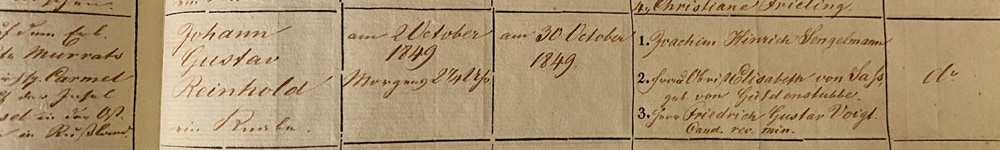 auf dem Erb-
Murrato
Parmel
auf der Insel
Ösel in der Ost-
see in Rußland
Johann
Gustav
Reinhold
ein Knabe.
am 2 October
1849
Morgens 2¼ Uhr
am 30 October
1849.
4. Christiane Frieling.
1. Joachim Hinrich Sengelmann
2. Frau Elisabeth von Sass,
geb. von Güldenstubbe.
3. Herr Friedrich Gustav Voigt.
Cand. rev. min.
do